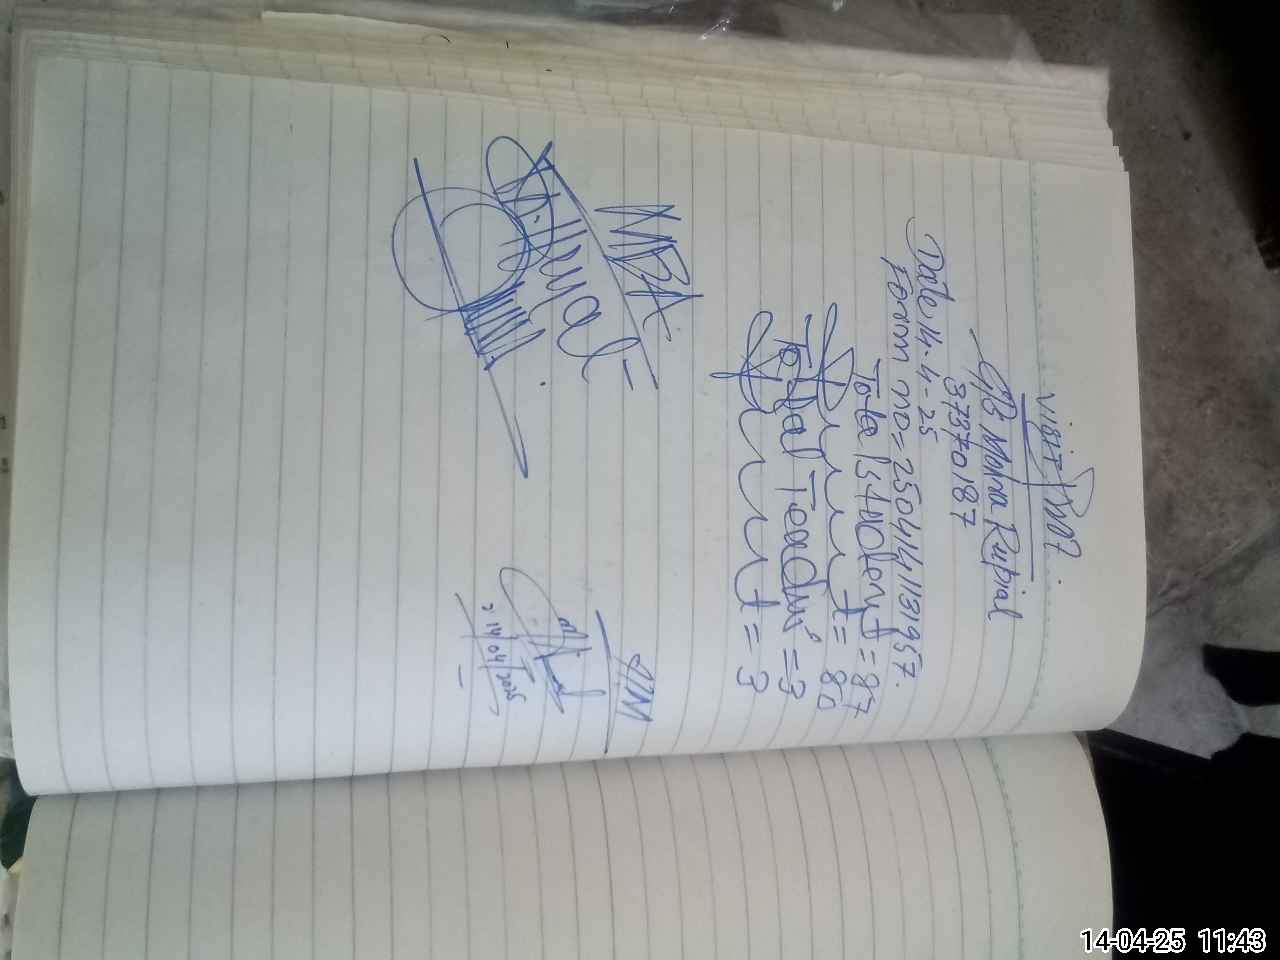 Visit Proof
GB Mohra Rupial
37370187
Date, 14-4-25
Foorm no = 2504141131957.
Total Student = 87
Present = 80
Total Teachi = 3
Present = 3
MBA
HM
14/04/2025
14-04-25 11:43